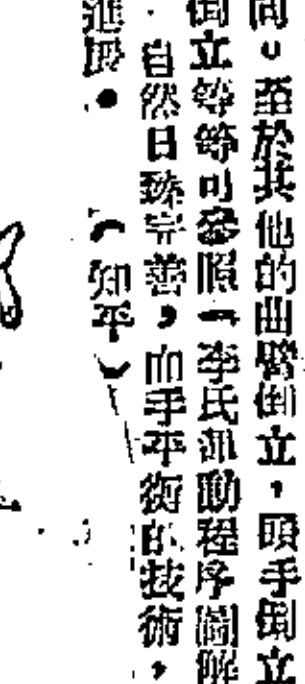 間。至於其他的曲臂倒立，頭手倒立
倒立等等可參照「李氏運動程序圖解
，自然日臻完善，而手平衡的技術，
進展。（知平）